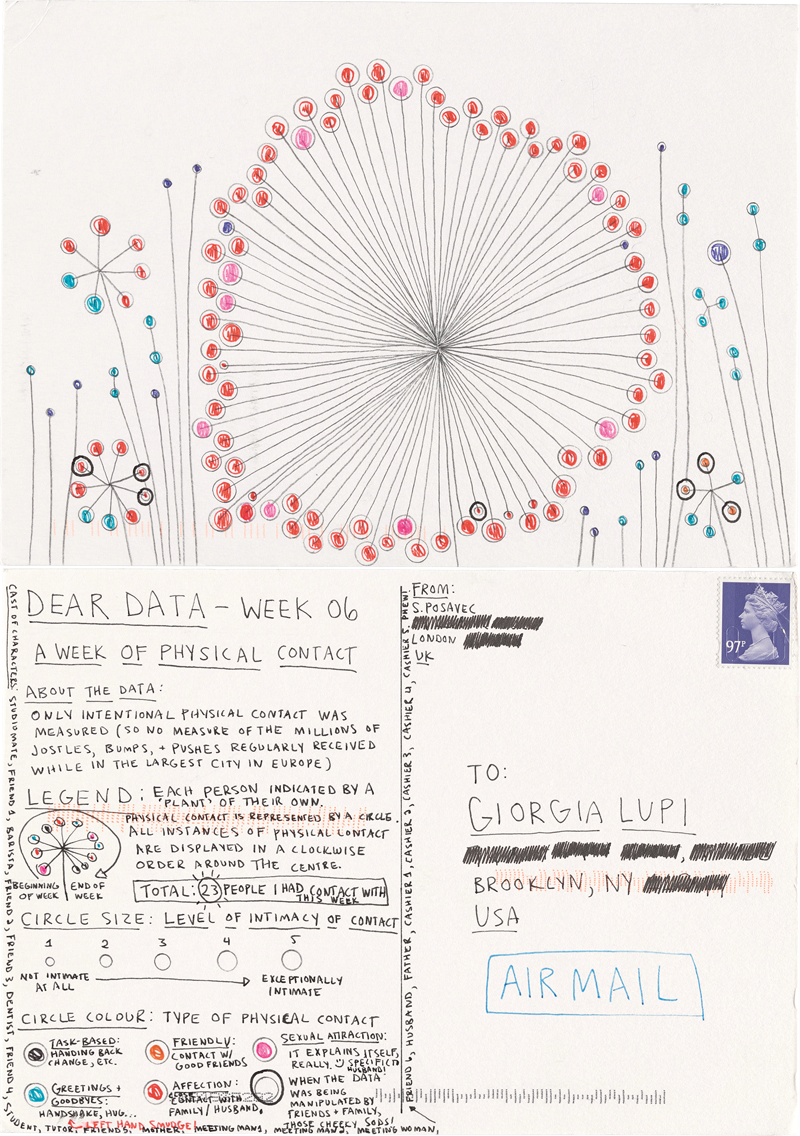 DEAR DATA – WEEK 06
A WEEK OF PHYSICAL CONTACT
ABOUT THE DATA:
ONLY INTENTIONAL PHYSICAL CONTACT WAS
MEASURED (SO NO MEASURE OF THE MILLIONS OF
JOSTLES, BUMPS, + PUSHES REGULARLY RECEIVED
WHILE IN THE LARGEST CITY IN EUROPE)
LEGEND: EACH PERSON INDICATED BY A
'PLANT' OF THEIR OWN.
PHYSICAL CONTACT IS REPRESENTED BY A CIRCLE.
ALL INSTANCES OF PHYSICAL CONTACT
ARE DISPLAYED IN A CLOCKWISE
ORDER AROUND THE CENTRE.
BEGINNING OF WEEK
END OF WEEK
TOTAL: 23 PEOPLE I HAD CONTACT WITH
THIS WEEK
CIRCLE SIZE: LEVEL OF INTIMACY OF CONTACT
1 2 3 4 5
NOT INTIMATE AT ALL
EXCEPTIONALLY INTIMATE
CIRCLE COLOUR: TYPE OF PHYSICAL CONTACT
TASK-BASED:
HANDING BACK
CHANGE, ETC.
FRIENDLY:
CONTACT W/
GOOD FRIENDS
SEXUAL ATTRACTION:
IT EXPLAINS ITSELF,
REALLY. (SPECIFIC TO
HUSBAND!)
GREETINGS +
GOODBYES:
HANDSHAKE, HUG...
AFFECTION:
CLOSE
CONTACT WITH
FAMILY/HUSBAND.
WHEN THE DATA
WAS BEING
MANIPULATED BY
FRIENDS + FAMILY,
THOSE CHEEKY SODS!
LEFT HAND SMUDGE
CAST OF CHARACTERS: STUDIOMATE, FRIEND 1, BARISTA, FRIEND 2, FRIEND 3, DENTIST, FRIEND 4, STUDENT, TUTOR, FRIEND 5, MOTHER, MEETING MAN 1, MEETING MAN 2, MEETING WOMAN,
FRIEND 6, HUSBAND, FATHER, CASHIER 1, CASHIER 2, CASHIER 3, CASHIER 4, CASHIER 5. PHEW!
FROM:
S. POSAVEC
LONDON
UK
97P
TO:
GIORGIA LUPI
BROOKLYN, NY
USA
AIR MAIL